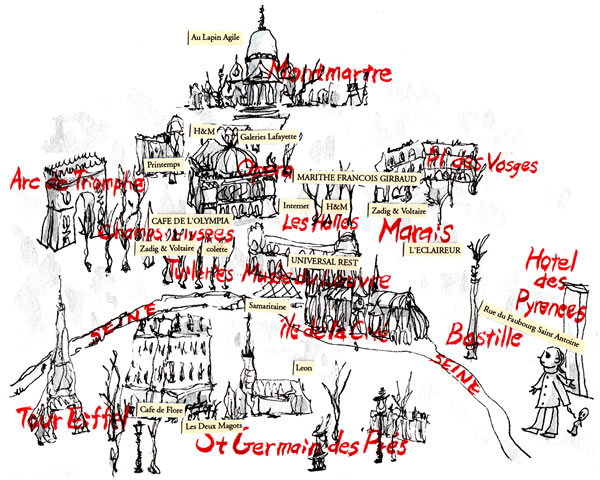 Au Lapin Agile
Montmartre
H&M
Galeries Lafayette
Printemps
Opera
Pl des Vosges
MARITHE FRANCOIS GIRBAUD
Arc de Triomphe
Internet
H&M
Zadig & Voltaire
CAFE DE L'OLYMPIA
Les Halles
Champs Elysees
Marais
Zadig & Voltaire
colette
L'ECLAIREUR
UNIVERSAL REST
Tuileries
Musee du Louvre
Hotel
des
Pyrenees
Samaritaine
Rue du Faubourg Saint Antoine
SEINE
île de la Cite
Bastille
SEINE
Leon
Tour Eiffel
Cafe de Flore
Les Deux Magots
St Germain des Prés